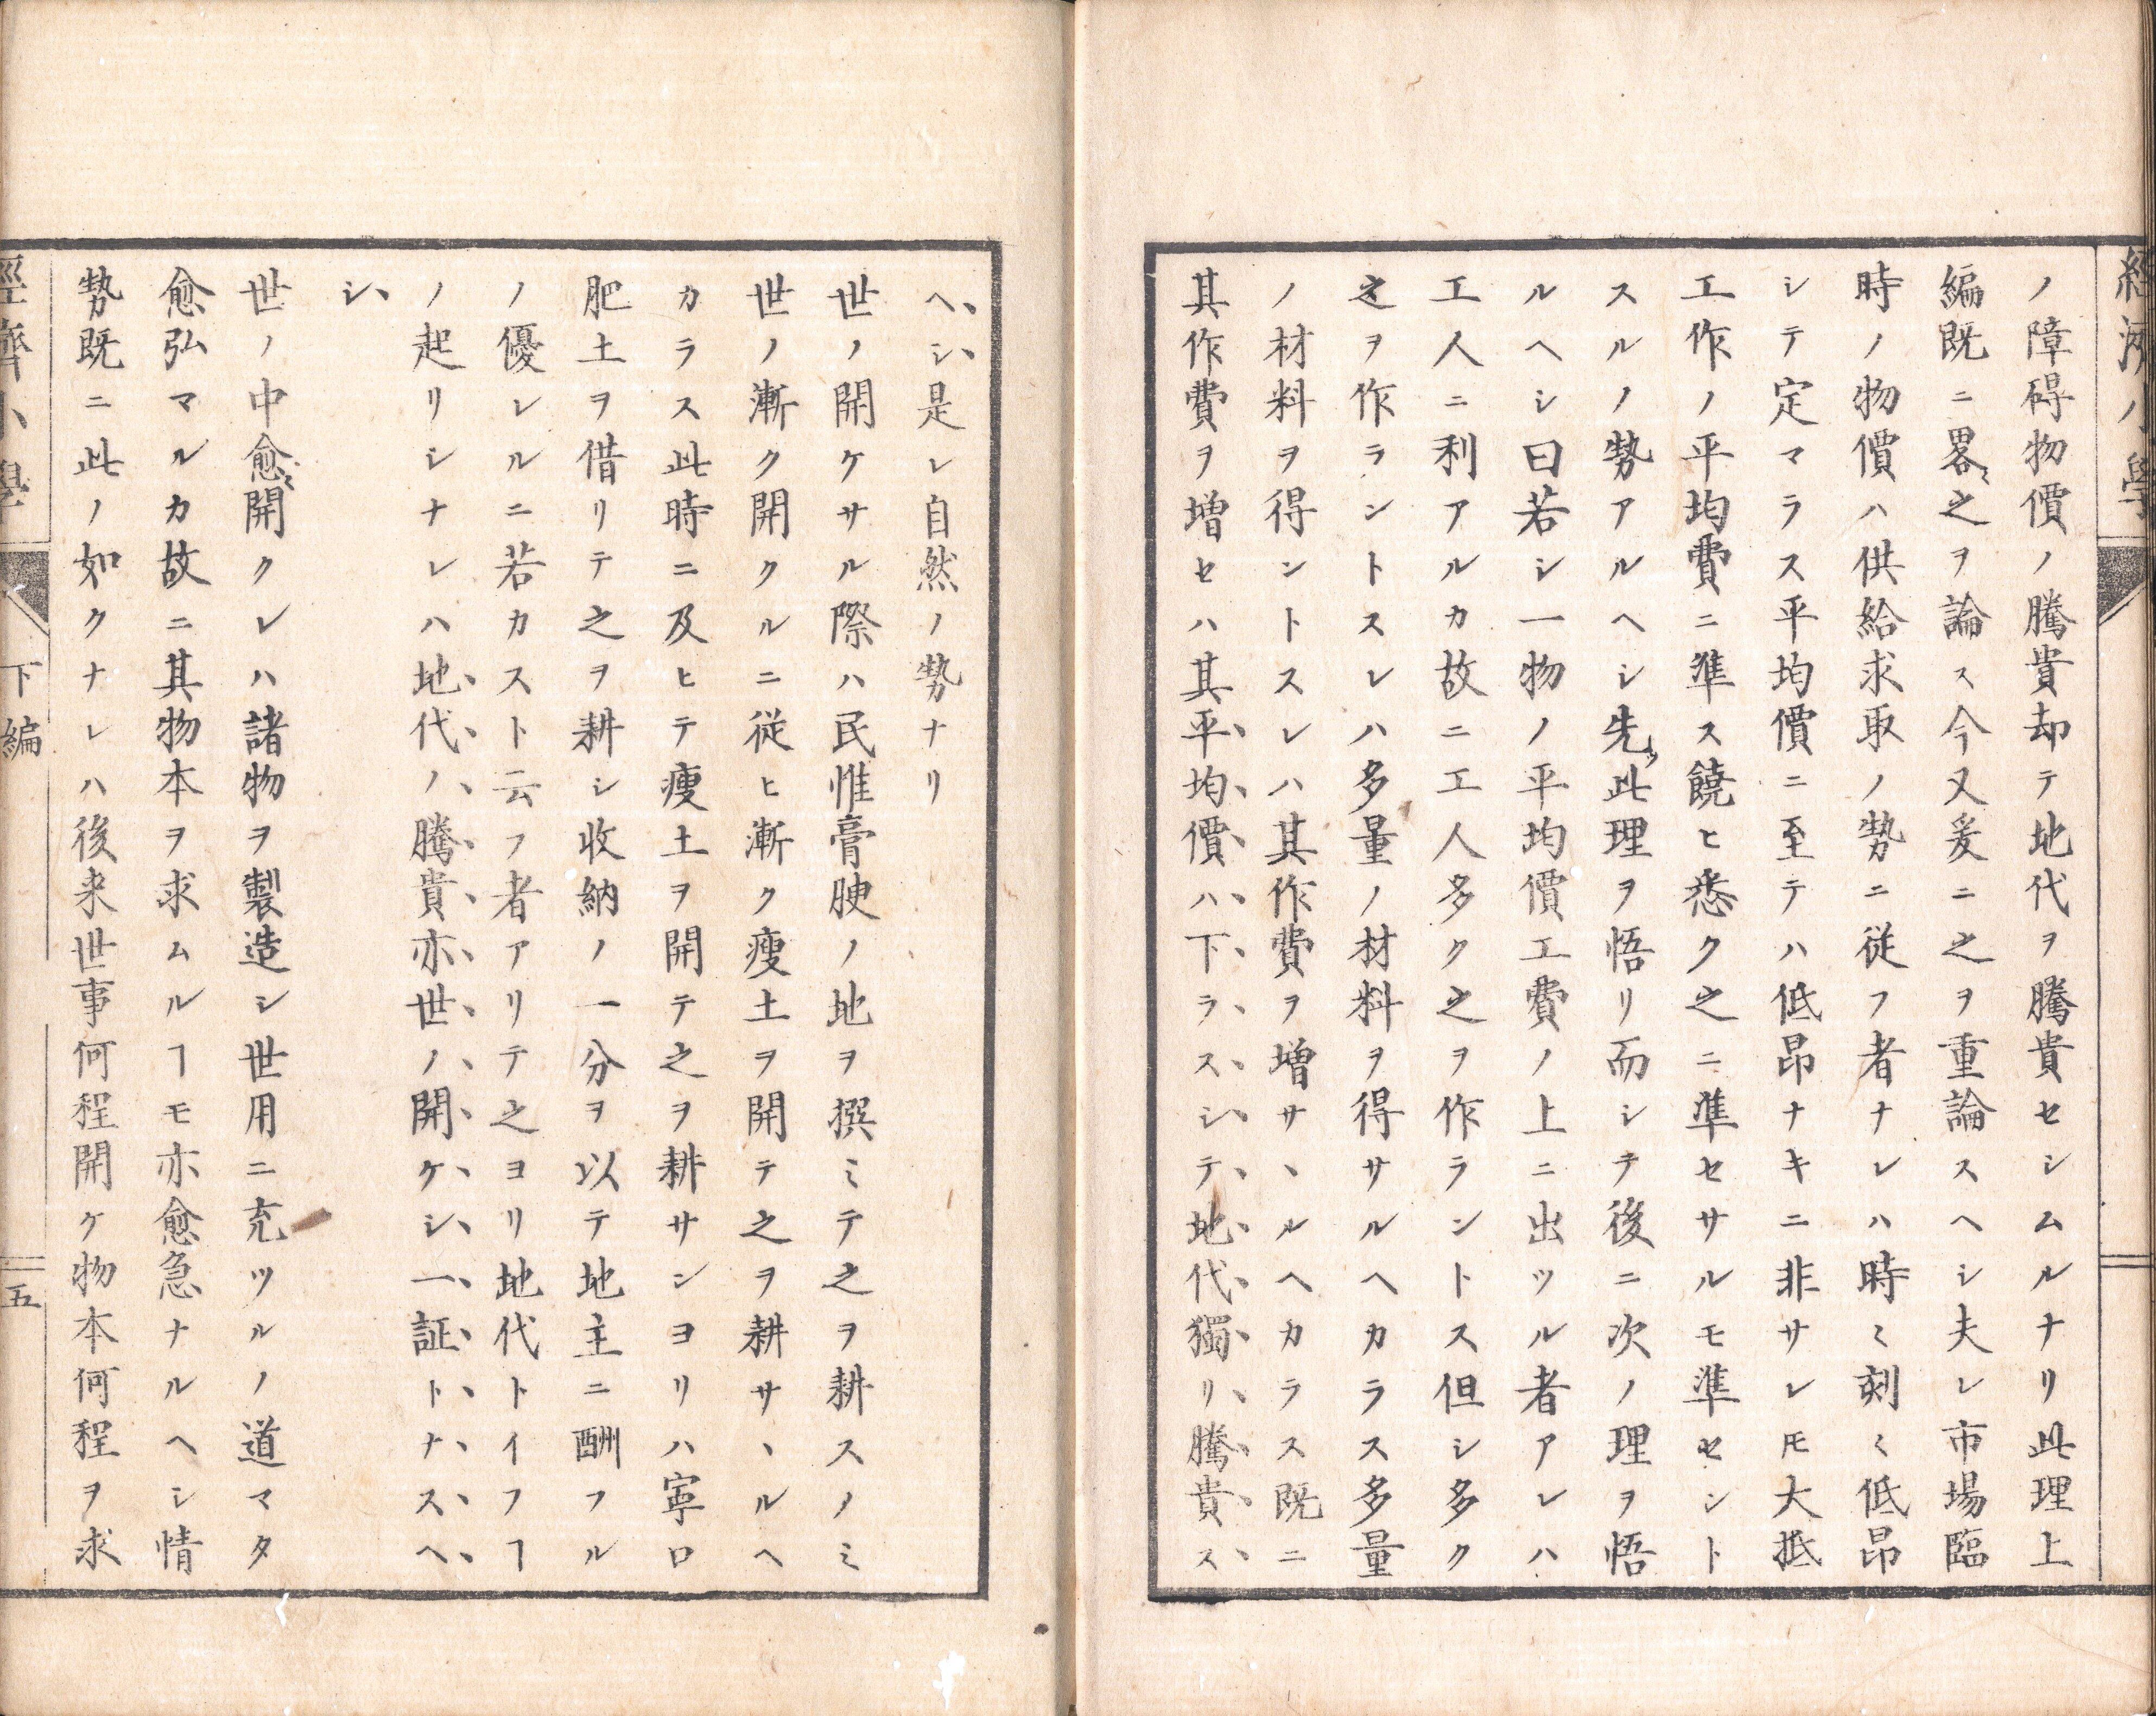 ノ障碍物價ノ騰貴却テ地代ヲ騰貴セシムルナリ此理上
編既ニ畧〻之ヲ論ス今又爰ニ之ヲ重論スヘシ夫レ市場臨
時ノ物價ハ供給求取ノ勢ニ従フ者ナレハ時ミ刻ミ低昂
シテ定マラス平均價ニ至テハ低昂ナキニ非サレ𪜈大抵
工作ノ平均費ニ準ス饒ヒ悉ク之ニ準セサルモ準セント
スルノ勢アルヘシ先ツ此理ヲ悟リ而シテ後ニ次ノ理ヲ悟
ルヘシ曰若シ一物ノ平均價工費ノ上ニ出ツル者アレハ
工人ニ利アルカ故ニ工人多ク之ヲ作ラントス但シ多ク
之ヲ作ラントスレハ多量ノ材料ヲ得サルヘカラス多量
ノ材料ヲ得ントスレハ其作費ヲ増サヽルヘカラス既ニ
其作費ヲ増セハ其平均價ハ下ラスシテ地代獨リ騰貴ス
ヘシ是レ自然ノ勢ナリ
世ノ開ケサル際ハ民惟膏腴ノ地ヲ撰ミテ之ヲ耕スノミ
世ノ漸ク開クルニ従ヒ漸ク瘦土ヲ開テ之ヲ耕サヽルヘ
カラス此時ニ及ヒテ瘦土ヲ開テ之ヲ耕サンヨリハ寧ロ
肥土ヲ借リテ之ヲ耕シ收納ノ一分ヲ以テ地主ニ酬フル
ノ優レルニ若カスト云フ者アリテ之ヨリ地代トイフヿ
ノ起リシナレハ地代ノ騰貴亦世ノ開ケシ一証トナスヘ
シ
世ノ中愈〻開クレハ諸物ヲ製造シ世用ニ充ツルノ道マタ
愈弘マルカ故ニ其物本ヲ求ムルヿモ亦愈急ナルヘシ情
勢既ニ此ノ如クナレハ後来世事何程開ケ物本何程ヲ求
經濟小學
下編
五